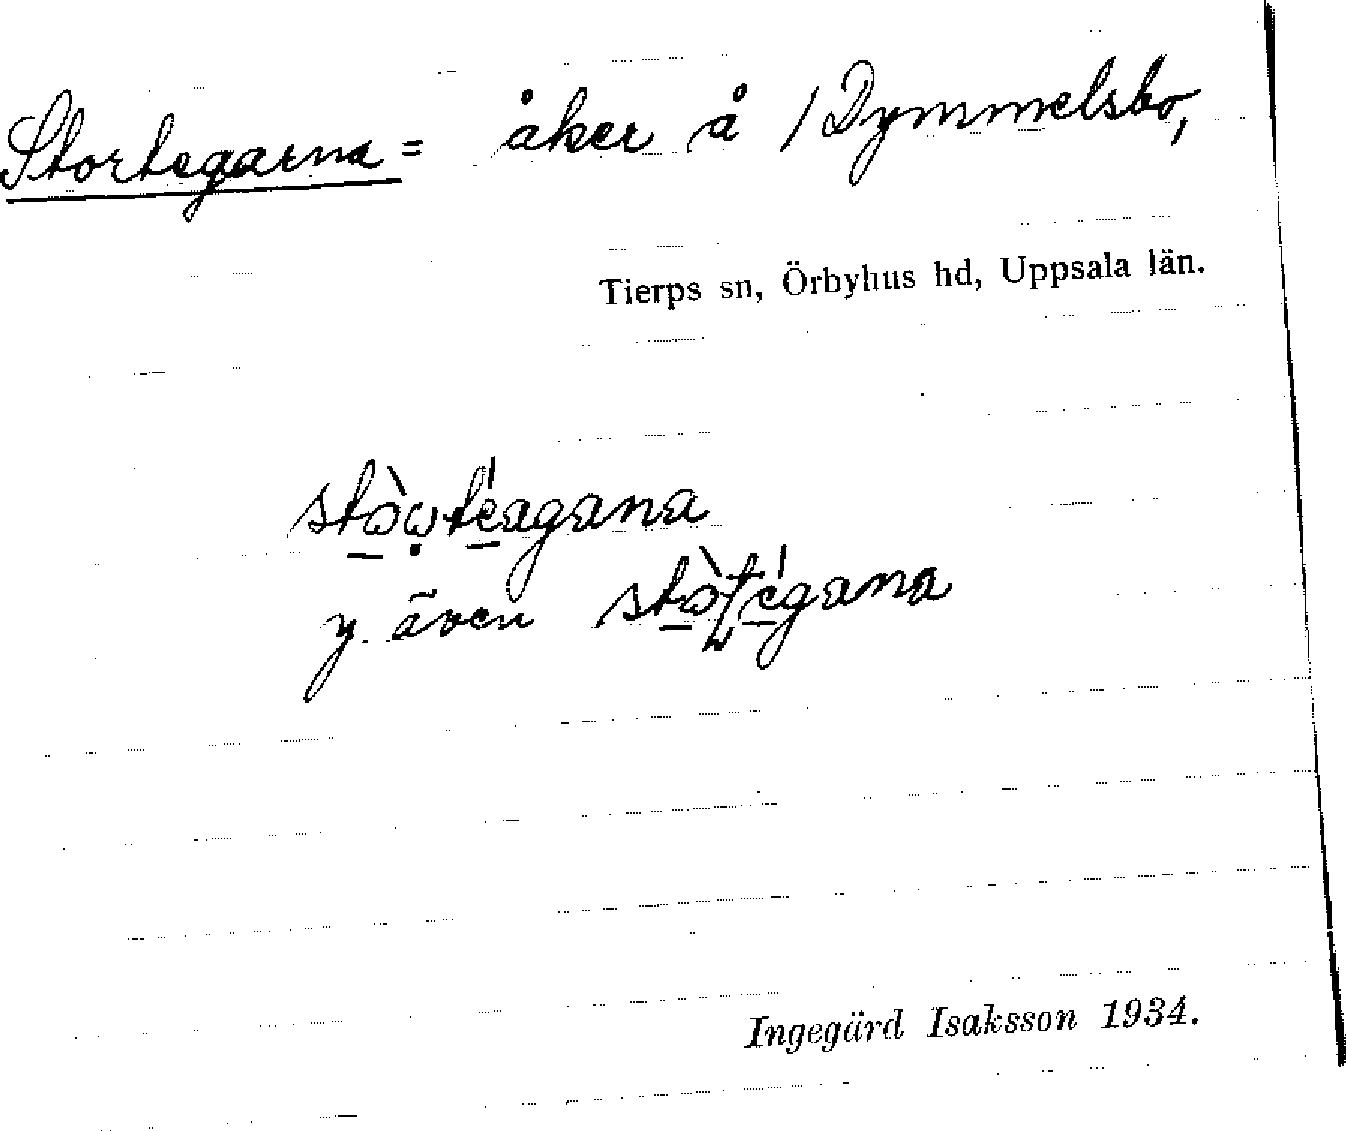 Stortegarna = åker å / Dymmelsbo,
Tierps sn, Örbyhus hd, Uppsala län.
y. även
Ingegärd Isaksson 1934.